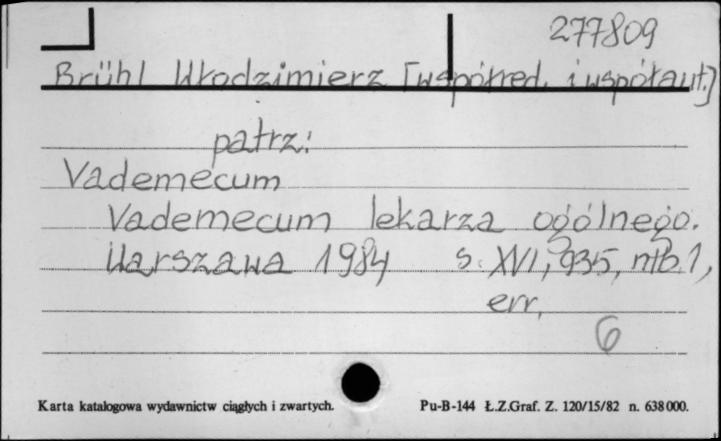 277809
Brühl Włodzimierz [współred. i współaut.]
patrz:
Vademecum
Vademecum lekarza ogólnego.
Warszawa 1984 s. XVI, 935, nlb. 1,
err.
6
Karta katalogowa wydawnictw ciągłych i zwartych. Pu-B-144 Ł.Z.Graf. Z. 120/15/82 n. 638000.